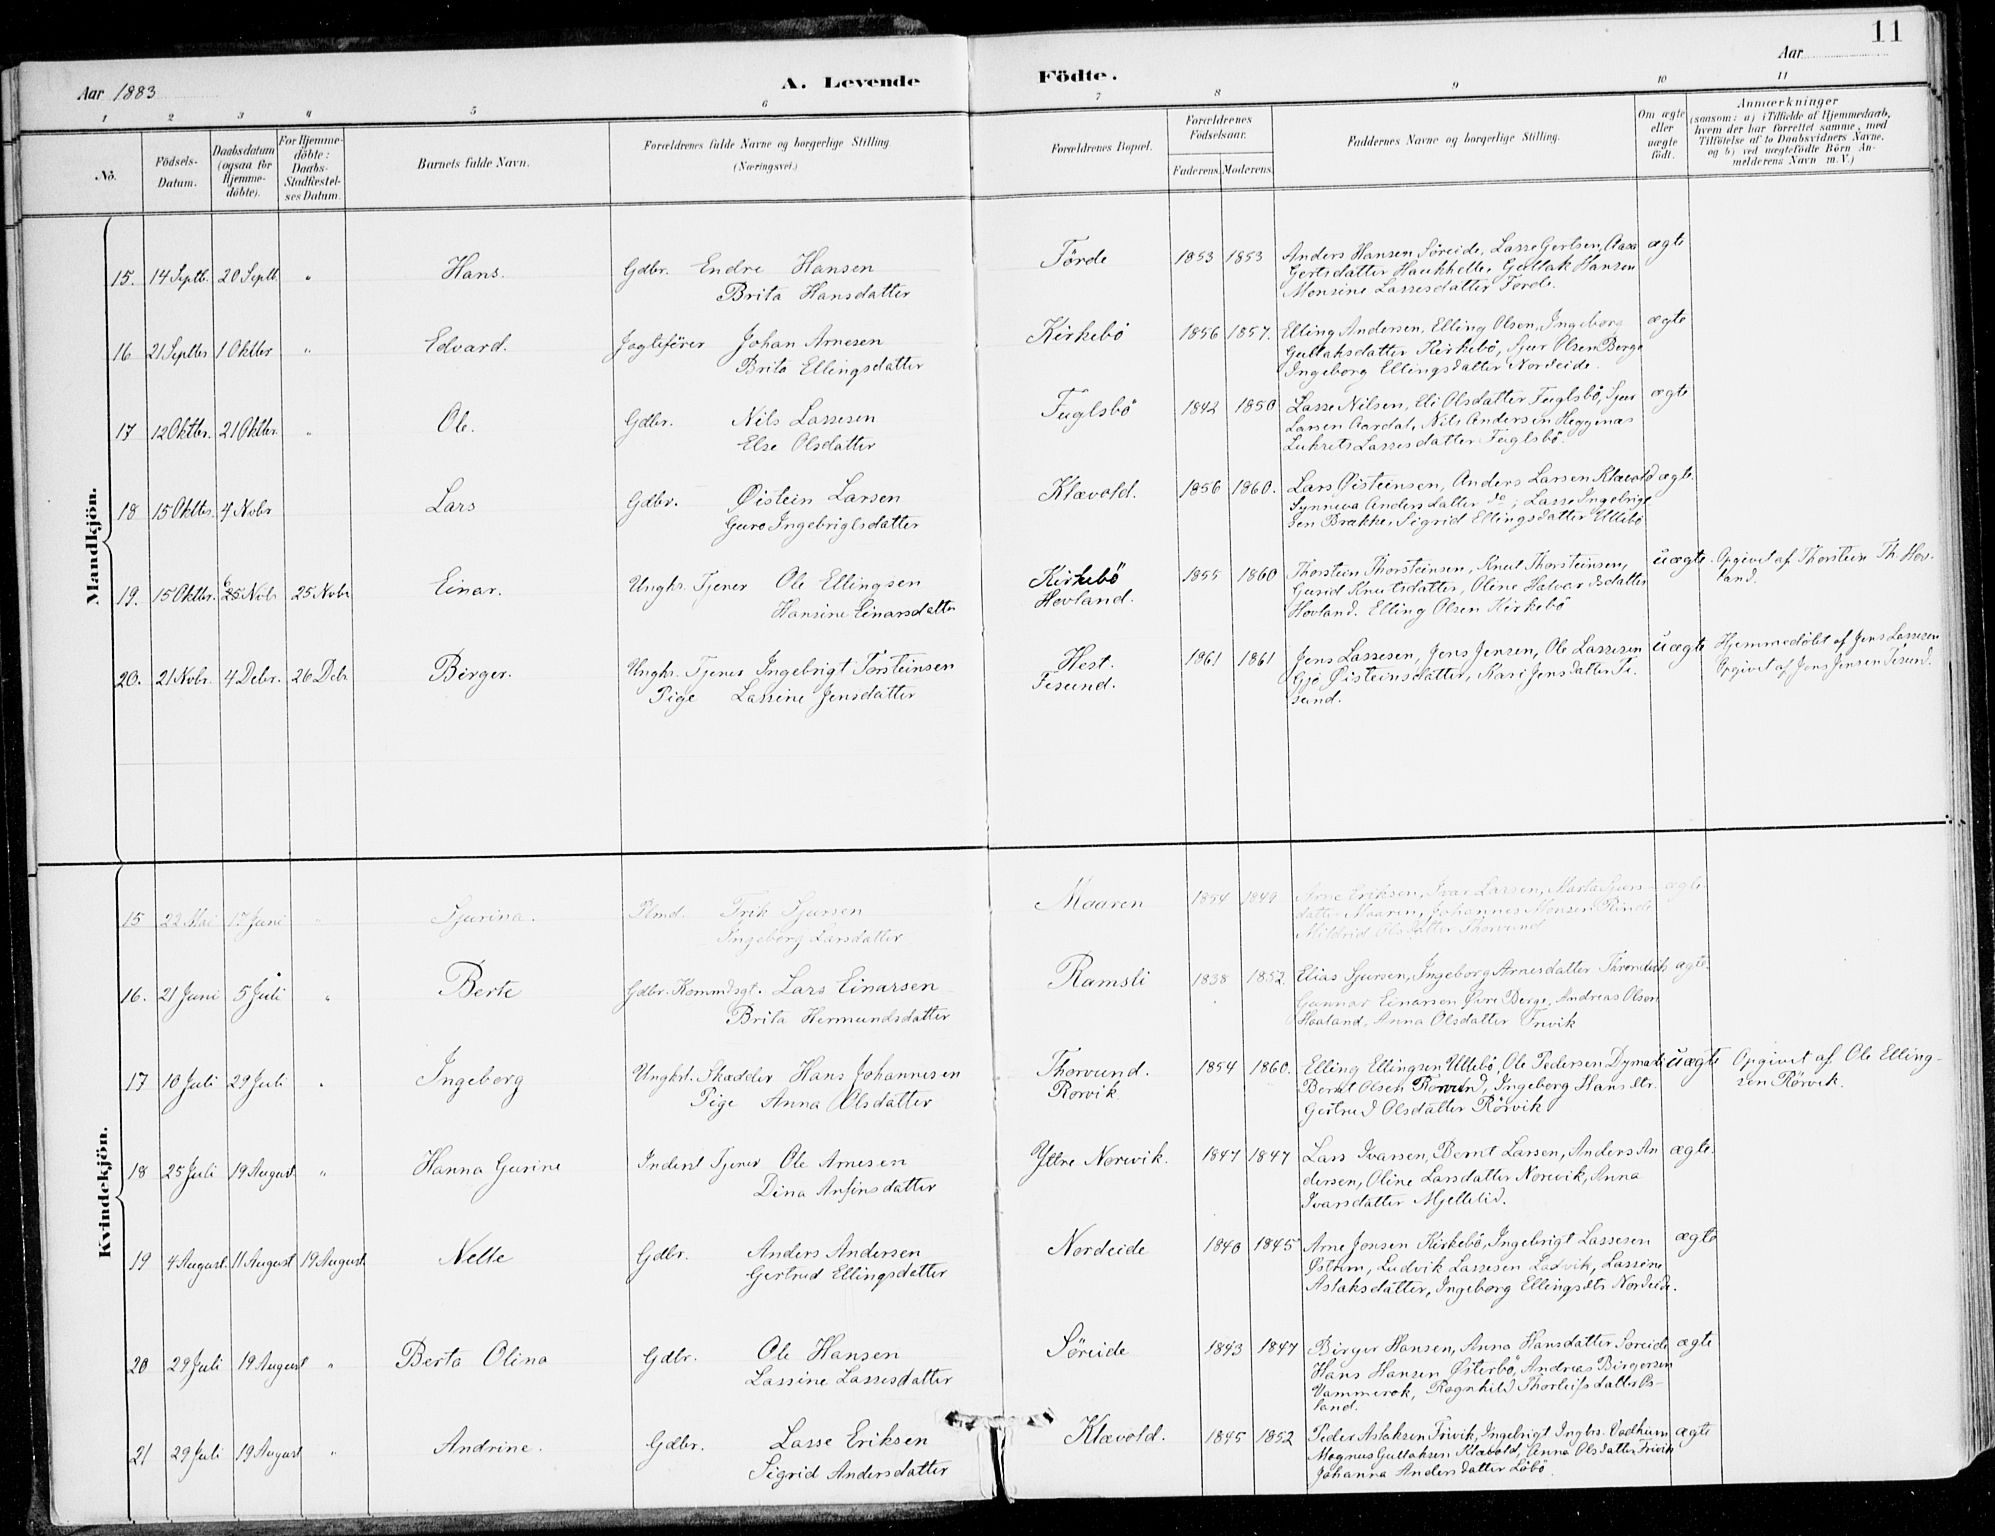 11
Aar 1883
A. Levende Födte.
Aar
1 2 3 4 5 6 7 8 9 10 11
No.
Födsels-Datum.
Daabsdatum (ogsaa for Hjemme-döbte).
For Hjemme-döbte: Daabs-Stadfæstel-ses Datum.
Barnets fulde Navn.
Forældrenes fulde Navne og borgerlige Stilling. (Næringsvei.)
Forældrenes Bopæl.
Forældrenes Födselsaar.
Faderens. Moderens.
Faddernes Navne og borgerlige Stilling.
Om ægte eller uægte födt.
Anmærkninger
(saasom: a) i Tilfælde af Hjemmedaab, hvem der har forrettet samme, med Tilföielse af to Daabsvidners Navne, og b) ved uægtefödte Börn Anmelderens Navn m. V.)
Mandkjön.
15. 14 Septb. 20 Septb. " Hans. Gdbr. Endre Hansen Förde 1853 1853 Anders Hansen Söreide, Lasse Gertsen, Aasa ægte
Brita Hansdatter Gertsdatter Haukhelle, Guttak Hansen
Monsine Lassesdatter Förde.
16 21 Septbr 1 Oktbr " Edvard. Johan Arnesen Kirkebö 1856 1857. Elling Andersen, Elling Olsen, Ingeborg ægte
Brita Ellingsdatter Guttaksdatter Kirkebö, Sjur Olsen Berge
Ingeborg Ellingsdatter Nordeide.
17 12 Oktbr. 21 Oktbr. " Ole. Gdbr. Nils Lassesen Fuglsbö 1842 1850 Lasse Nilsen, Eli Olsdatter Fuglsbö, Sjur ægte
Else Olsdatter Larsen Aardal, Nils Andersen Heggenæs
Lukrets Lassesdatter Fuglsbö.
18 15 Oktbr. 4 Nobr Lars Gdbr. Øistein Larsen Klævold. 1856 1860. Lars Øisteinsen, Anders Larsen Klævold ægte.
Guro Ingebrigtsdatter Synneva Andersdatter do, Lasse Ingebrigt-
sen Brække, Sigrid Ellingsdatter Ullebö
19. 15 Oktbr. 25 Nobr 25 Nobr Einar. Unghr. Tjener Ole Ellingsen Kirkebö 1855 1860 Thorstein Thorsteinsen, Knut Thorsteinsen, uægte. Opgivet af Thorstein Th. Hov-
Hansine Einarsdatter Hovland. Gurid Knutsdatter, Oline Halvardsdatter land.
Hovland. Elling Olsen Kirkebö
20. 21 Nobr. 4 Debr. 26 Debr Birger. Unghr. Tjener Ingebrigt Torsteinsen Hest. 1861 1861 Jens Lassesen, Jens Jensen, Ole Lassesen uægte Hjemmedöbt af Jens Lassesen
Pige Lassine Jensdatter Tisund. Gjö Øisteinsdatter, Kari Jensdatter Ti- Opgivet af Jens Jensen Tisund.
sund.
Kvindekjön.
15 22 Mai 17 Juni " Sjurina. Plmd. Erik Sjursen Maaren 1854 1849 Arne Eriksen, Ivar Larsen, Marta Sjurs- ægte
Ingeborg Larsdatter datter Maaren, Johannes Monsen Rinde
Mildrid Olsdatter Thorvund
16. 21 Juni 5 Juli " Berte Gdbr. Kommdsgt. Lars Einarsen Ramsli 1838 1852. Elias Sjursen, Ingeborg Arnesdatter ægte.
Brita Hermundsdatter Gunnar Einarsen Øvre Berge, Andreas Olsen
Haaland, Anna Olsdatter Trivik
17 10 Juli 29 Juli " Ingeborg Unghrl. Skædder Hans Johannesen Thorvund. 1854 1860. Elling Ellingsen Ullebö, Ole Pedersen uægte Opgivet af Ole Elling-
Pige Anna Olsdatter Rorvik Bernt Olsen Ingeborg Hansdtr. sen Rörvik.
Gertrud Olsdatter Rörvik
18 25 Juli 19 August " Hanna Gurine Inderst Tjener Ole Arnesen Yttre Norevik. 1847 1847 Lars Ivarsen, Bernt Larsen, Anders An- ægte.
Dina Anfinsdatter dersen, Oline Larsdatter Norevik, Anna
Ivarsdatter Mjellelid.
19 4 August. 11 August 19 August. Nelle Gdbr. Anders Andersen Nordeide 1840 1845 Arne Jonsen Kirkebö, Ingebrigt Lassesen ægte
Gertrud Ellingsdatter Østrem, Ludvik Lassesen Ladvik, Lassine
Aslaksdatter, Ingeborg Ellingsdtr Nordeide.
20 29 Juli 19 August " Berta Olina Gdbr. Ole Hansen Söreide 1843 1847 Birger Hansen, Anna Hansdatter Söreide ægte
Lassine Lassesdatter Hans Hansen Østerbö, Andreas Birgersen
Vammerok, Ragnhild Thorleifsdatter Øs-
land.
21 29 Juli 19 August " Andrine. Gdbr. Lasse Eriksen Klævold. 1845 1852 Peder Aslaksen Trivik, Ingebrigt Ingbr. Vadheim ægte
Sigrid Andersdatter Magnus Guttaksen Klævold, Anna Olsdatter Trivik
Johanna Andersdatter Löbö.